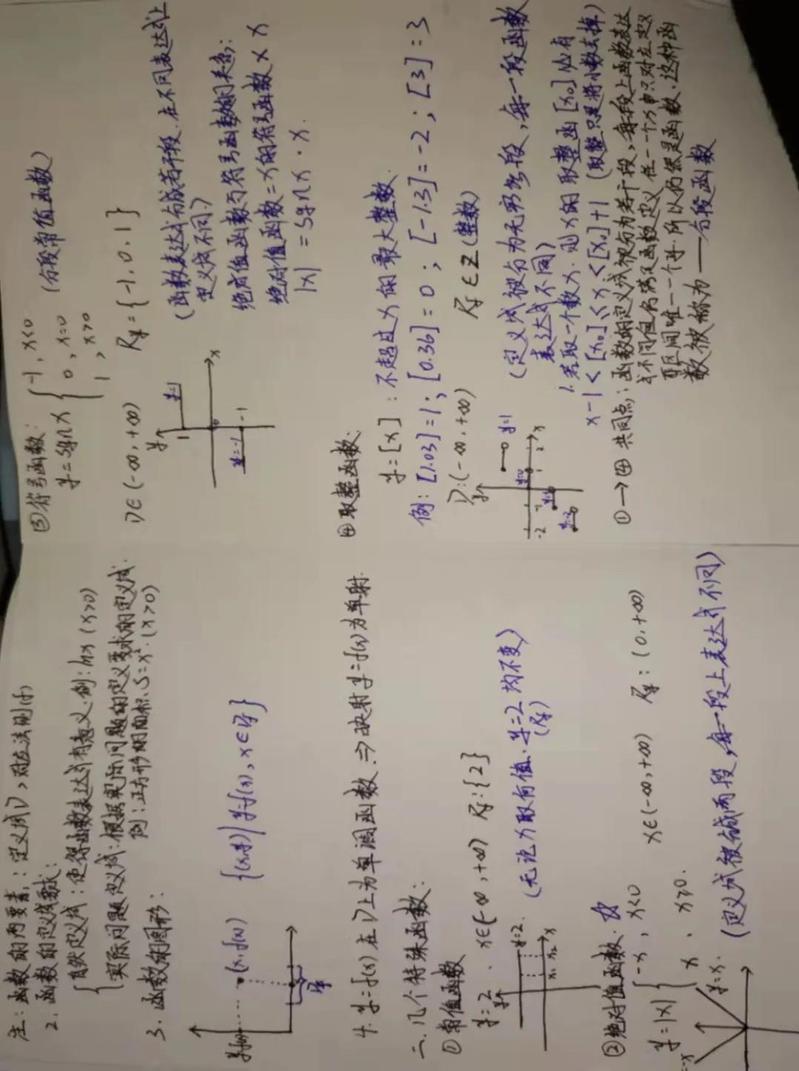 注：函数的两要素：定义域D，对应法则(f)
2. 函数的定义域求法：
自然定义域：使得函数表达式有意义. 例：lnx (x>0)
实际问题定义域：根据实际问题的定义要求的定义域.
例：正方形的面积. S=x². (x>0)
3. 函数的图形：
(x,f(x)) {(x,y)|y=f(x), x∈D}
4. y=f(x)在D上为单调函数 ⇒ 映射y=f(x)为单射.
二、几个特殊函数：
①常值函数
y=2. x∈(-∞,+∞) Rf:{2}
(无论x取何值, y=2均不变)
(Rf)
y=2.
x₁ x₂ x
②绝对值函数.
y=|x| { -x, x<0
x, x≥0.
x∈(-∞,+∞) Rf:(0,+∞)
y=-x y=x.
(定义域被分成两段, 每一段上表达式不同)
③符号函数：
y=sgnx { -1, x<0
0, x=0
1, x>0
(分段常值函数)
D∈(-∞,+∞) Rf={-1,0,1}
(函数表达式分成若干段, 在不同表达式上
定义域不同)
绝对值函数与符号函数的关系：
绝对值函数=x的符号函数×x
|x|=sgnx·x.
y=1
y=-1
④取整函数：
y=[x]：不超过x的最大整数.
例：[1.03]=1；[0.36]=0；[-1.3]=-2；[3]=3
D:(-∞,+∞) Rf∈Z(整数)
(定义域被分为无穷多段, 每一段函数
表达式不同)
1. 若取一个数x, 则x的取整函[x₀]必有
x-1<[x₀]≤x<[x₀]+1 (取整只是将小数去掉)
①→④共同点：函数的定义域被分为若干段, 每段上函数表达
式不同但有满足函数定义, 在一个x中只对应定义
区间唯一一个y. 所以仍然是函数. 这种函
数被称为——分段函数